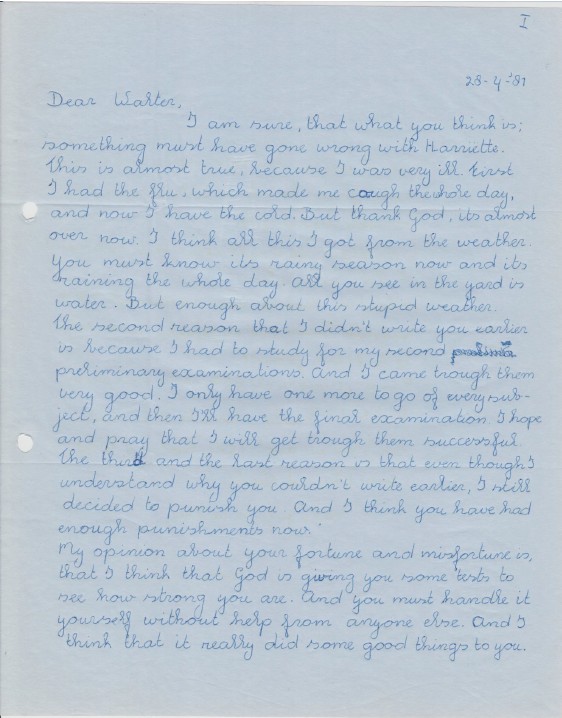 I
28-4-'81
Dear Walter,
I am sure, that what you think is;
something must have gone wrong with Harriette.
This is almost true, because I was very ill. First
I had the flu, which made me cough the whole day,
and now I have the cold. But thank God, its almost
over now. I think all this I got from the weather.
You must know its rainy season now and its
raining the whole day. All you see in the yard is
water. But enough about this stupid weather.
The second reason that I didn't write you earlier
is because I had to study for my second
preliminary examinations. And I came trough them
very good. I only have one more to go of every sub-
ject, and then I'll have the final examination. I hope
and pray that I will get trough them successful.
The third and the last reason is that even though I
understand why you couldn't write earlier, I still
decided to punish you. And I think you have had
enough punishments now.
My opinion about your fortune and misfortune is,
that I think that God is giving you some tests to
see how strong you are. And you must handle it
yourself without help from anyone else. And I
think that it really did some good things to you.